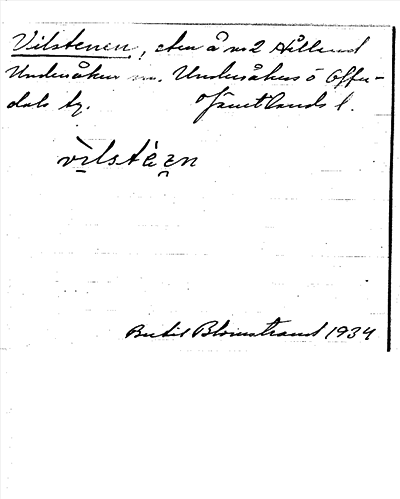 Vilstenen, sten å nr 2 Hålland
Undersåker sn. Undersåkers o Offer-
dals tg. Jämtlands l.
vilstèan
Bertil Blomstrand 1934